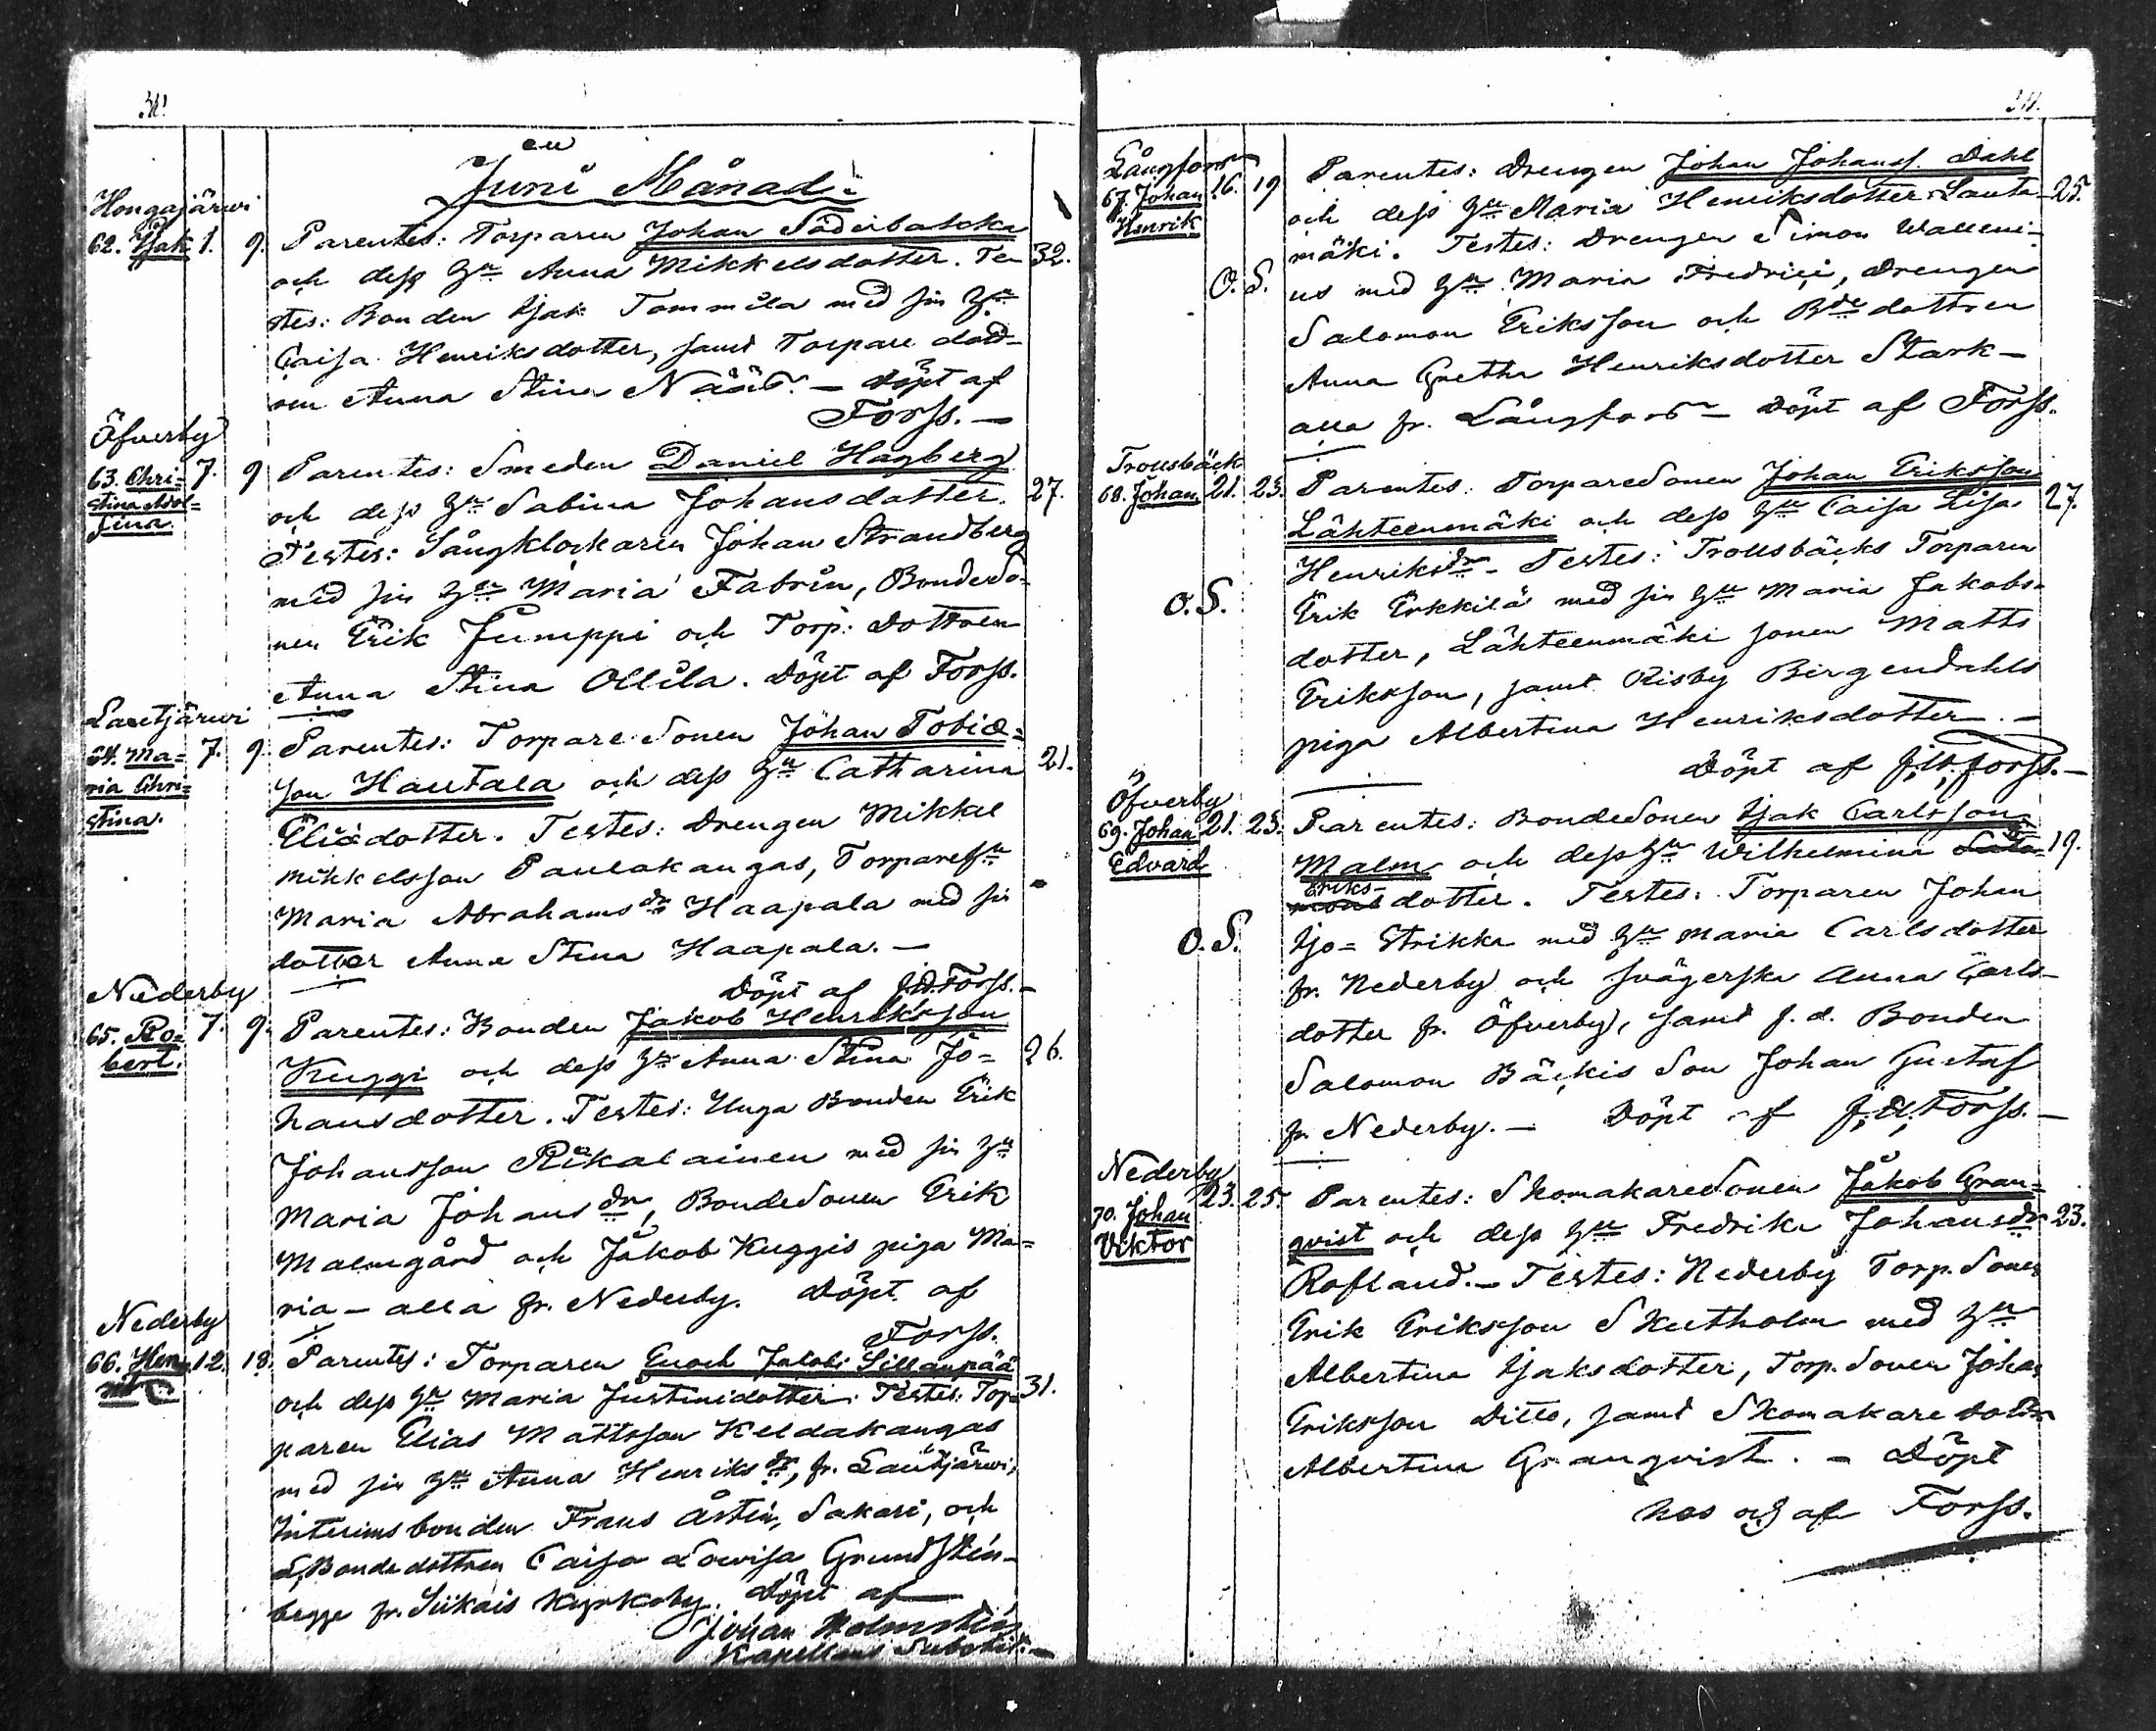 Juni Månad.
Hongajärwi
62. Isak 1. 9. Parentes: Torparen Johan Söderbacka
och dess hu Anna Mikkelsdotter. Te- 32.
stes: Bonden Isak Tommila med sin hu
Caisa Henriksdotter, samt Torpare dott-
ren Anna Stina Nääs. — Döpt af
Forss. —
Öfverby
63. Chri- 7. 9 Parentes: Smeden Daniel Hagberg
stina
sina. och dess hu Sabina Johansdotter. 27.
Testes: Sångklockaren Johan Strandberg
med sin hu Maria Fabrin, Bondeso-
nen Erik Jumppi och Torp. dottren
Anna Stina Ollila. Döpt af Forss.
Lautjärwi
64. Ma- 7. 9. Parentes: Torpare Sonen Johan Tobia-
ria Chri- son Hautala och dess hu Catharina 21.
stina. Eliædotter. Testes: Drengen Mikkel
Mikkelsson Paulakangas, Torpare hu
Maria Abrahams dr Haapala med sin
dotter Anna Stina Haapala. —
Döpt af J.W. Forss. —
Nederby
65. Ro- 7. 9. Parentes: Bonden Jakob Henriksson
bert. Kuggi och dess hu Anna Stina Jo- 26.
hansdotter. Testes: Unga Bonden Erik
Johansson Pikalainen med sin hu
Maria Johans dr, Bondesonen Erik
Malmgård och Jakob Kuggis piga Ma-
ria — alla fr. Nederby. Döpt af
Forss.
Nederby
66. Hen- 12. 18. Parentes: Torparen Enoch Jakobs. Sillanpää
rik och dess hu Maria Justinidotter. Testes: Tor- 31.
paren Elias Mattsson Keldakangas
med sin hu Anna Henriks dr, fr. Lautjärwi,
Interimsbonden Frans Åstin, Sakari, och
Bondedottren Caisa Lovisa Grundstén —
begge fr. Siikais Kyrkoby. Döpt af
Johan Holmstén
Kapellans Substit. —
Långfors
67. Johan 16. 19 Parentes: Drengen Johan Johanss. Dahl
Henrik och dess hu Maria Henriksdotter Lauta- 25.
mäki. Testes: Drengen Simon Walleni-
O.S. us med hu Maria Fredrici, Drengen
Salomon Eriksson och Bde dottren
Anna Gretha Henriksdotter Stark —
alla fr. Långfors — Döpt af Forss.
Trollsbäck
68. Johan 21. 23. Parentes: Torparesonen Johan Eriksson
Lähteenmäki och dess hu Caisa Lisa 27.
Henriksdr. Testes: Trollsbäcks Torparen
O.S. Erik Erkkilä med sin hu Maria Jakobs-
dotter, Lähteenmäki sonen Matts
Eriksson, samt Risby Birgendahls
piga Albertina Henriksdotter. —
Döpt af J.W. Forss. —
Öfverby
69. Johan 21. 23. Parentes: Bondesonen Isak Carlsson
Edvard Malm och dess hu Wilhelmina Salo- 19.
Eriks-
mons dotter. Testes: Torparen Johan
O.S. Iso-Strikka med hu Maria Carlsdotter
fr. Nederby och svägerska Anna Carls-
dotter fr. Öfverby, samt f.d. Bonden
Salomon Bäckis Son Johan Gustaf
fr. Nederby. — Döpt af J.W. Forss. —
Nederby
70. Johan 23. 25. Parentes: Skomakaresonen Jakob Gran-
Viktor qvist och dess hu Fredrika Johansdr 23.
Rofland. — Testes: Nederby Torp. Sonen
Erik Eriksson Skutholm med hu
Albertina Isaksdotter, Torp. Sonen Johan
Eriksson Ditto, samt Skomakare dottr.
Albertina Granqvist. — Döpt
hos och af Forss.